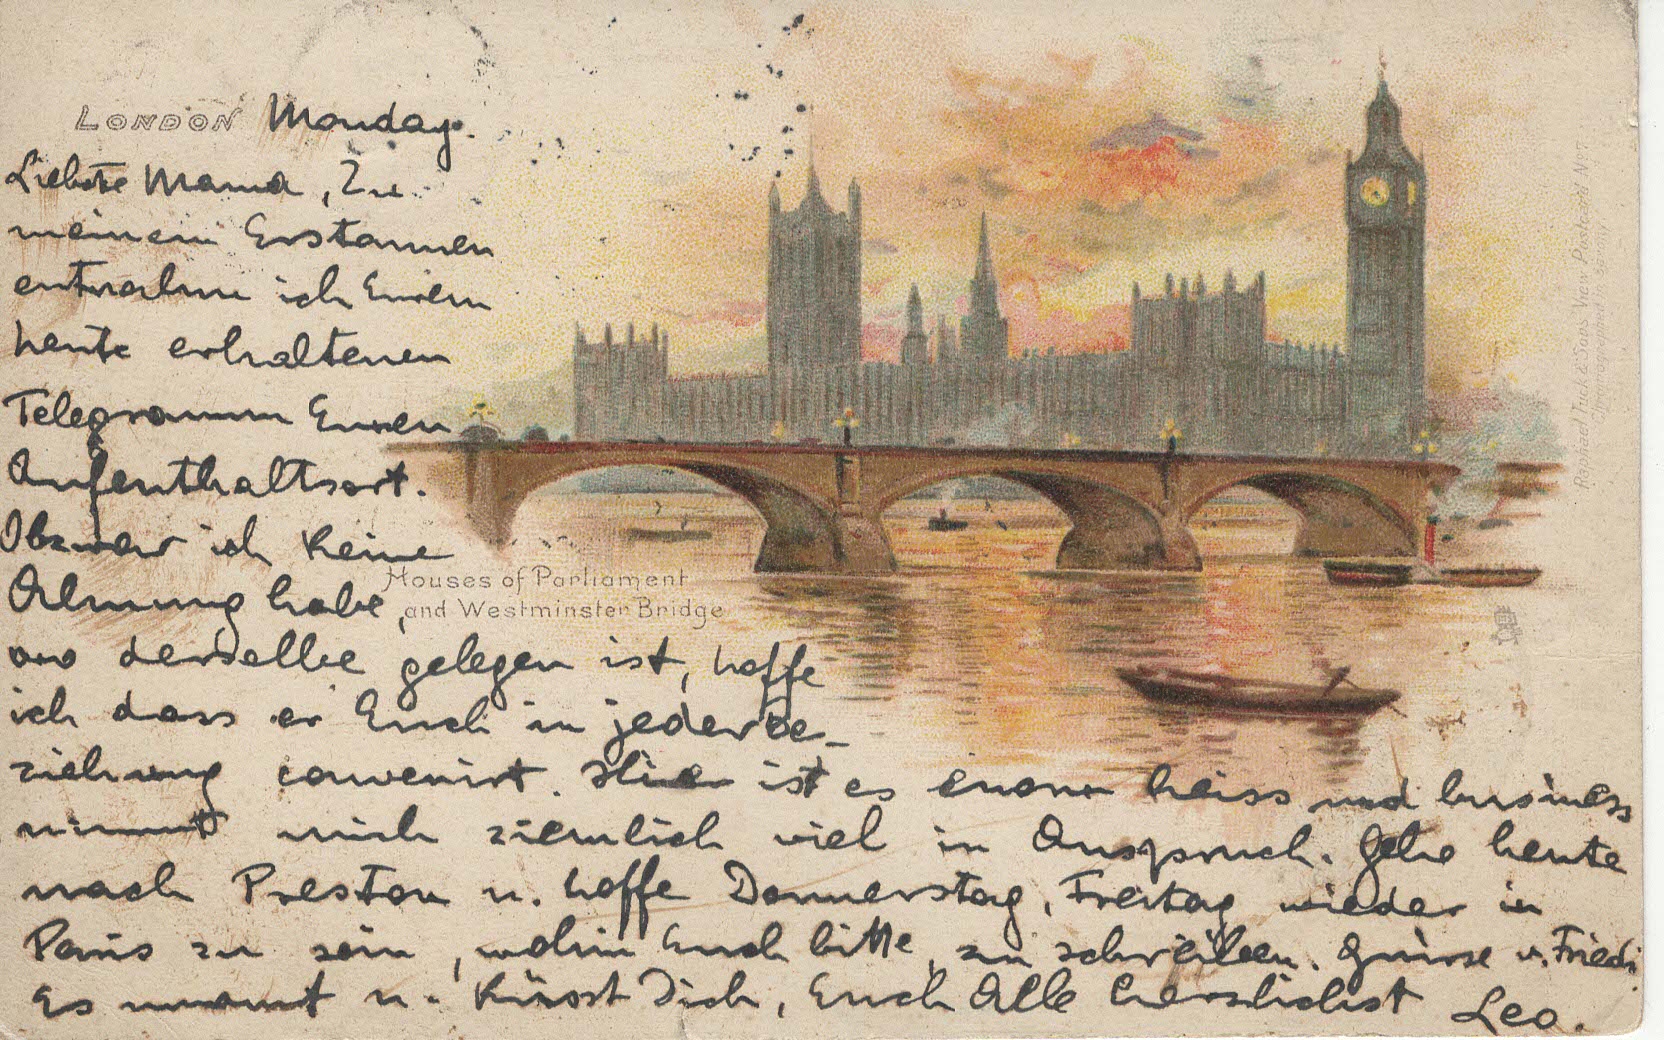 LONDON Monday.
Liebste Mama, Zu
meinem Erstaunen
entnahm ich Eurem
heute erhaltenen
Telegramm Euren
Aufenthaltsort.
Obzwar ich keine
Ahnung habe,
wo derselbe gelegen ist, hoffe
ich dass er Euch in jeder Be-
ziehung convenirt. Hier ist es enorm heiss und business
nimmt mich ziemlich viel in Anspruch. Gehe heute
nach Preston u. hoffe Donnerstag, Freitag wieder in
Paris zu sein, wohin Euch bitte, zu schreiben. Grüsse v. Friedi
Es umarmt u. küsst Dich, Euch Alle herzlichst Leo.
Houses of Parliament
and Westminster Bridge
Raphael Tuck & Sons View Postcard No 7